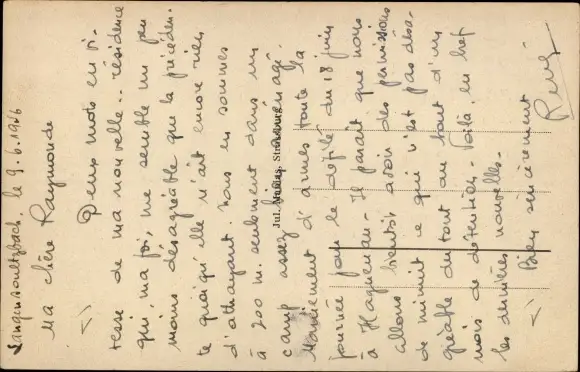 Langensoultzbach. le 9.6.1946
Ma chère Raymonde
Deux mots en vi-
tesse de ma nouvelle.. résidence
qui, ma foi, me semble un peu
moins désagréable que la précéden-
te quoiqu'elle n'ait encore rien
d'attrayant. Nous en sommes
à 200 m. seulement dans un
camp assez bien aménagé.
Maniement d'armes toute la
journée pour le défilé du 18 juin
à Haguenau. Il paraît que nous
allons bientôt avoir des permissions
de minuit ce qui n'est pas désa-
gréable du tout au bout d'un
mois de détention. Voilà, en bref
les dernières nouvelles.
Bien sincèrement
René
Jul.